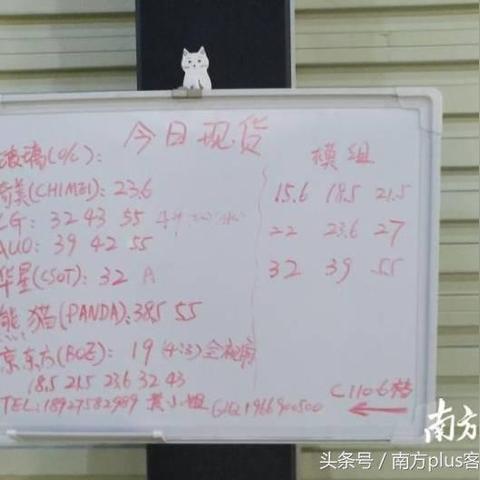 今日现货
玻璃(O/C):
奇美(CHIMEI): 23.6
LG: 32 43 55
AUO: 39 42 55
华星(CSOT): 32 A
熊猫(PANDA): 38.5 55
京东方(BOE): 19 (4:3) 全视角
18.5 21.5 23.6 32 43
TEL: 18927582989 黄小姐 QQ1966900500
模组
15.6 18.5 21.5
22 23.6 27
32 39 55
C110-6档
南方
头条号 / 南方plus客